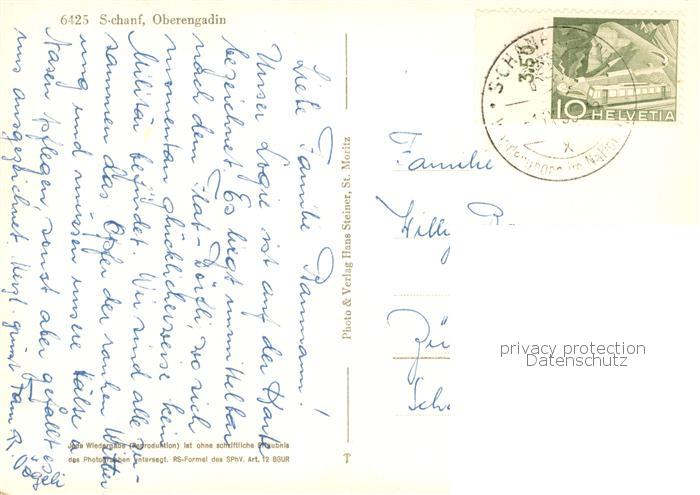 6425 S-chanf, Oberengadin
Liebe Familie
Unser Logie ist auf der Karte
bezeichnet. Es liegt unmittelbar
nach dem Flab-Dörfli, wo sich
momentan glücklicherweise kein
Militär befindet. Wir sind alle zu-
sammen das Opfer der rauhen Witter
ung und müssen unsere Hälse u
Nasen pflegen, sonst aber gefällt es
uns ausgezeichnet. Herzl. grüsst Fam R.
Jede Wiedergabe (Reproduktion) ist ohne schriftliche Erlaubnis
des Photographen untersagt. RS-Formel des SPhV. Art. 12 BGUR
Photo & Verlag Hans Steiner, St. Moritz
T
S-CHANF
3.50
10 HELVETIA
Familie
Willy
Zü
privacy protection
Datenschutz